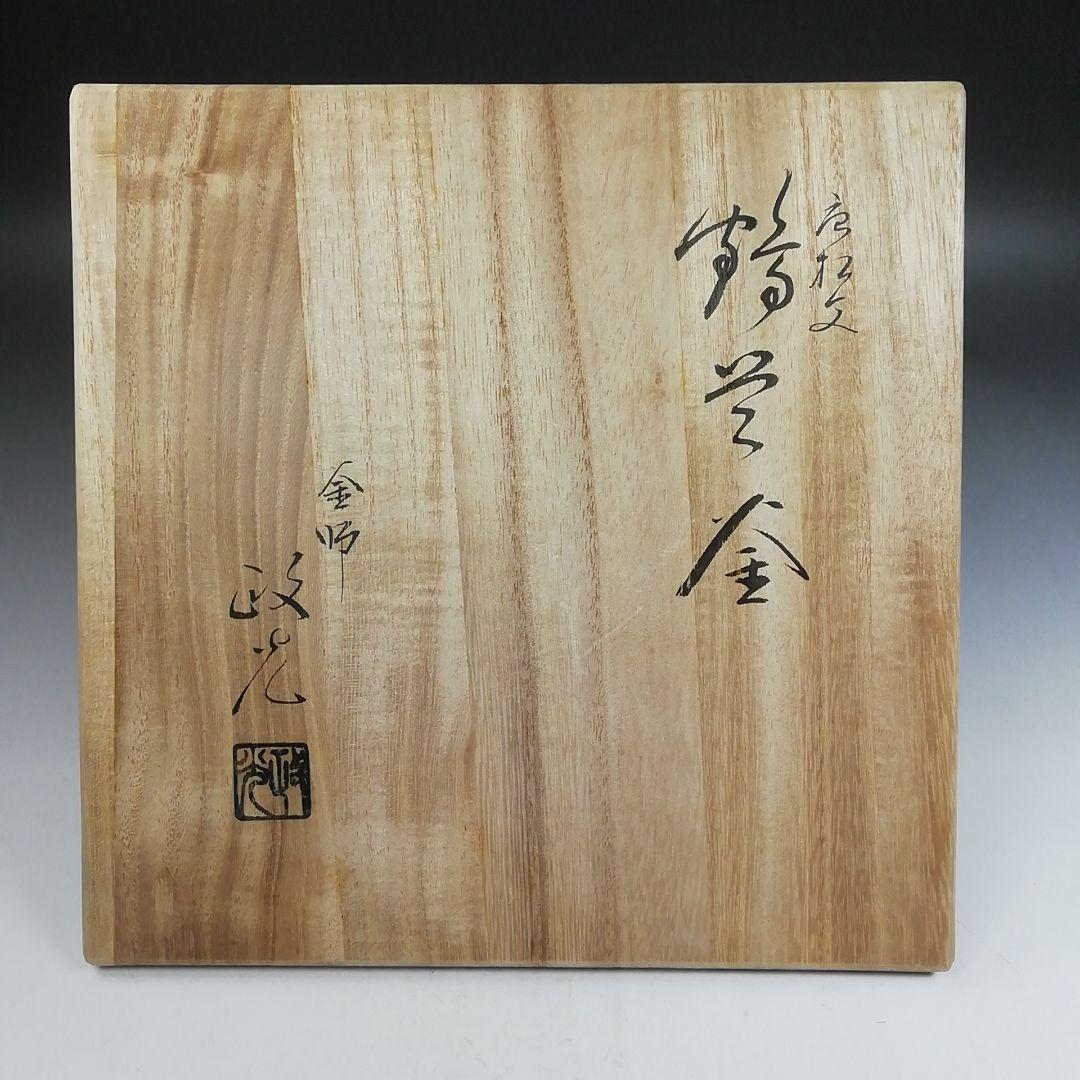 唐松文
鶴首釜
釜師
政光
政光